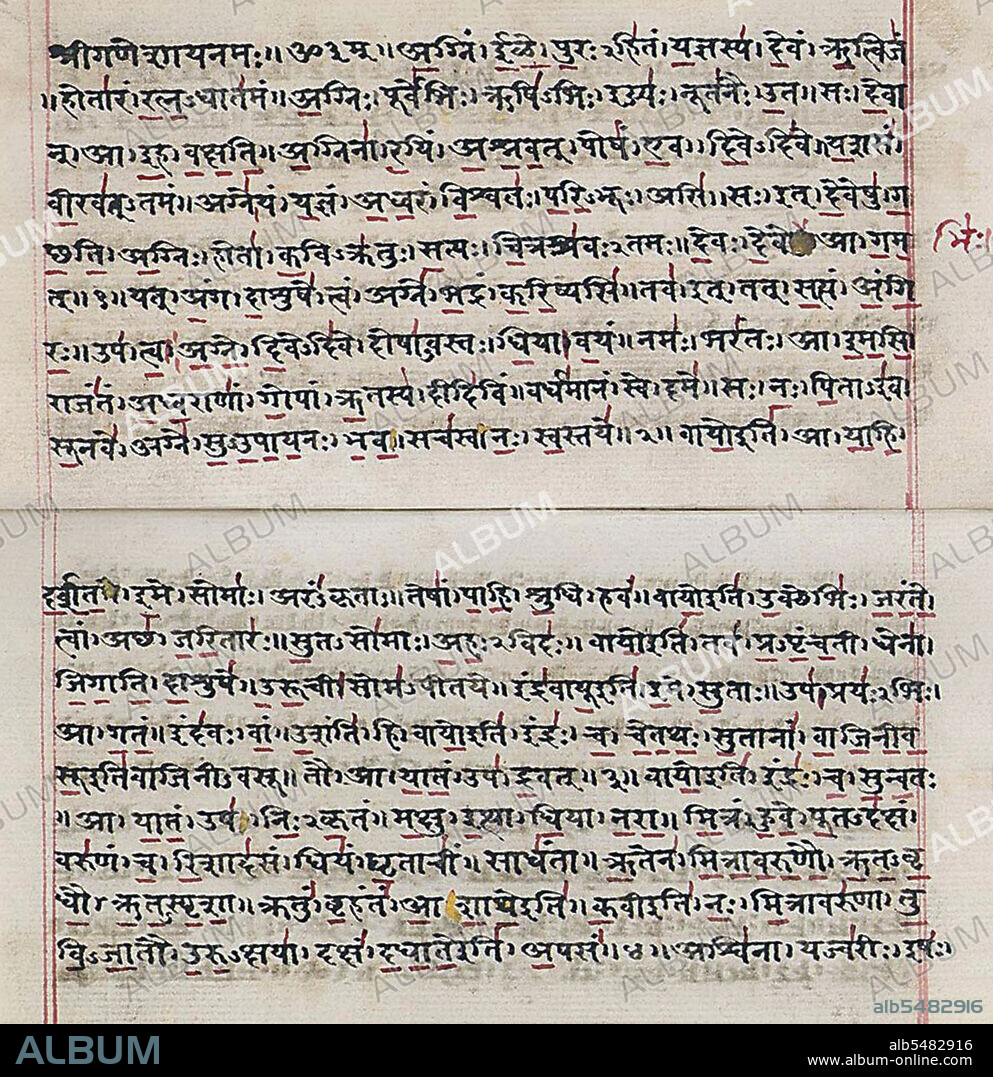 श्रीगणेशायनमः॥ॐ३म्॥अग्निं।ईळे।पुरःऽहितं।यज्ञस्य।देवं।ऋत्विजं
॥होतारं।रत्नऽधातमं॥अग्निः।पूर्वेभिः।ऋषिऽभिः।ईड्यः।नूतनैः।उत॥सः।देवा
न्।आ।इह।वक्षति॥अग्निना।रयिं।अश्नवत्।पोषं।एव।दिवेऽदिवे॥यशसं।
वीरवत्ऽतमं॥अग्नेयं।यज्ञं।अध्वरं।विश्वतः।परिऽभूः।असि॥सः।इत्।देवेषु।ग
छति।अग्निः।होता।कविऽक्रतुः।सत्यः।चित्रश्रवःऽतमः॥देवः।देवे आ।गम
भिः।
त्॥१॥यत्।अंग।दाशुषे।त्वं।अग्ने।भद्रं।करिष्यसि॥तव।इत्।तत्।सत्यं।अंगि
रः॥उप।त्वा।अग्ने।दिवेऽदिवे।दोषाऽवस्तः।धिया।वयं॥नमः।भरंतः।आ।इमसि।
राजंतं।अध्वराणां।गोपां।ऋतस्य।दीदिविं॥वर्धमानं।स्वे।दमे॥सः।नः।पिताऽइव।
सूनवे।अग्ने।सुऽउपायनः।भव॥सचस्व।नः।स्वस्तये॥२॥वायोइति।आ।याहि।
दर्शत।इमे।सोमाः।अरंऽकृताः॥तेषां।पाहि।श्रुधि।हवं॥वायोइति।उक्थेभिः।जरंते।
त्वां।अछ।जरितारः॥सुतऽसोमाः।अहःऽविदः॥वायोइति।तव।प्रऽपृंचती।धेना।
जिगाति।दाशुषे॥उरूची।सोमऽपीतये॥इंद्रवायूइति।इमे।सुताः॥उप।प्रयःऽभिः।
आ।गतं॥इंदवः।वां।उशंति।हि।वायोइति।इंद्रः।च।चेतथः।सुतानां।वाजिनीव
सूइतिवाजिनीऽवसू॥तौ।आ।यातं।उप।द्रवत्॥३॥वायोइति।इंद्रः।च।सुन्वतः
॥आ।यातं।उप।निःऽकृतं॥मक्षु।इत्था।धिया।नरा॥मित्रं।हुवे।पूतऽदक्षं।
वरुणं।च।रिशादसं॥धियं।घृताचीं॥साधंता॥ऋतेन।मित्रावरुणौ।ऋतऽवृ
धौ।ऋतऽस्पृशा॥ऋतुं।बृहंतं।आ।शाथेइति॥कवीइति।नः।मित्रावरुणा।तु
विऽजातौ।उरुऽक्षया।दक्षं।दधातेइति।अपसं॥४॥अश्विना।यज्वरीः।इषः।